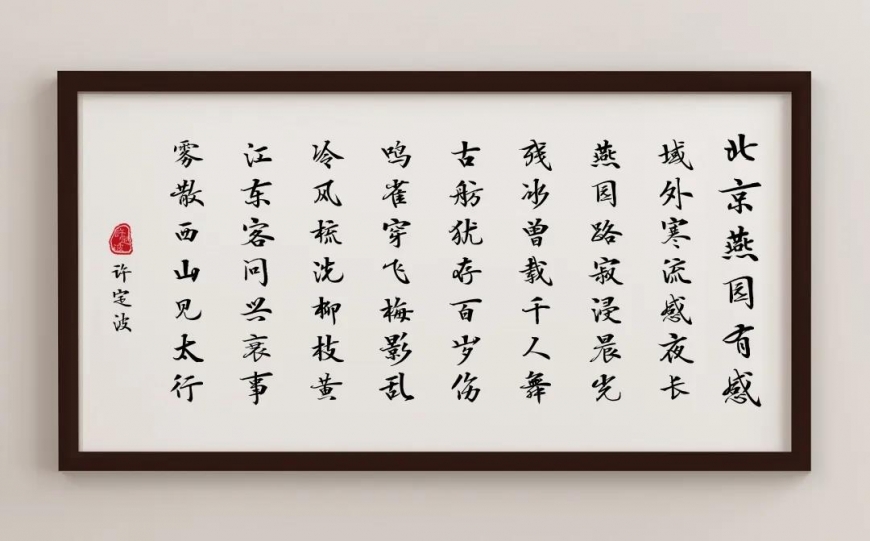 北京燕园有感
域外寒流感夜长
燕园路寂浸晨光
残冰曾载千人舞
古舫犹存百岁伤
鸣雀穿飞梅影乱
冷风梳洗柳枝黄
江东客问兴衰事
雾散西山见太行
许定波